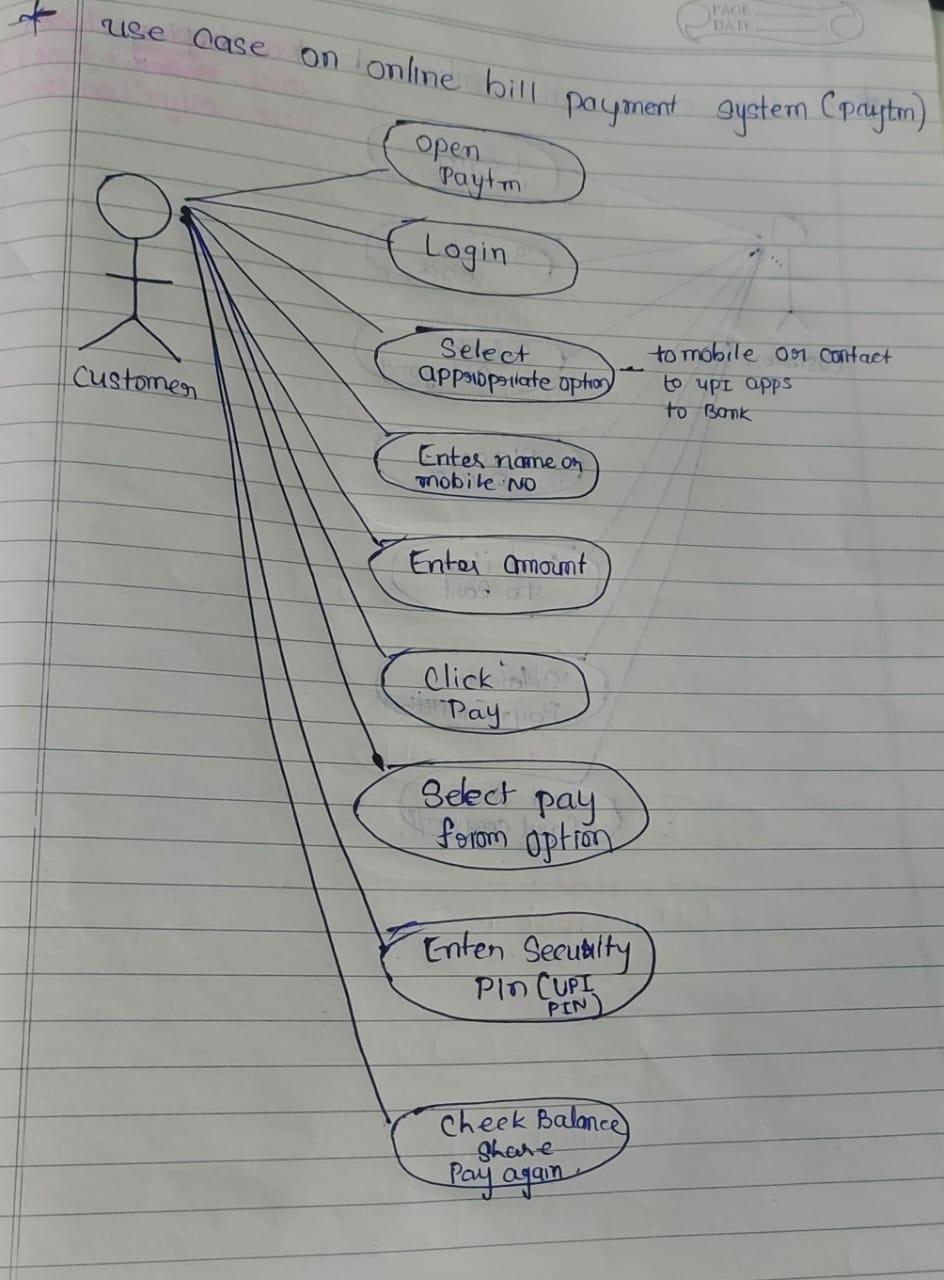 PAGE
DATE
* use case on online bill payment system (paytm)
Open
Paytm
Login
Select
appropriate option
to mobile or contact
to UPI apps
to Bank
Customer
Enter name or
mobile NO
Enter amount
Click
Pay
Select pay
from option
Enter Security
Pin (UPI
PIN)
Check Balance
Share
Pay again